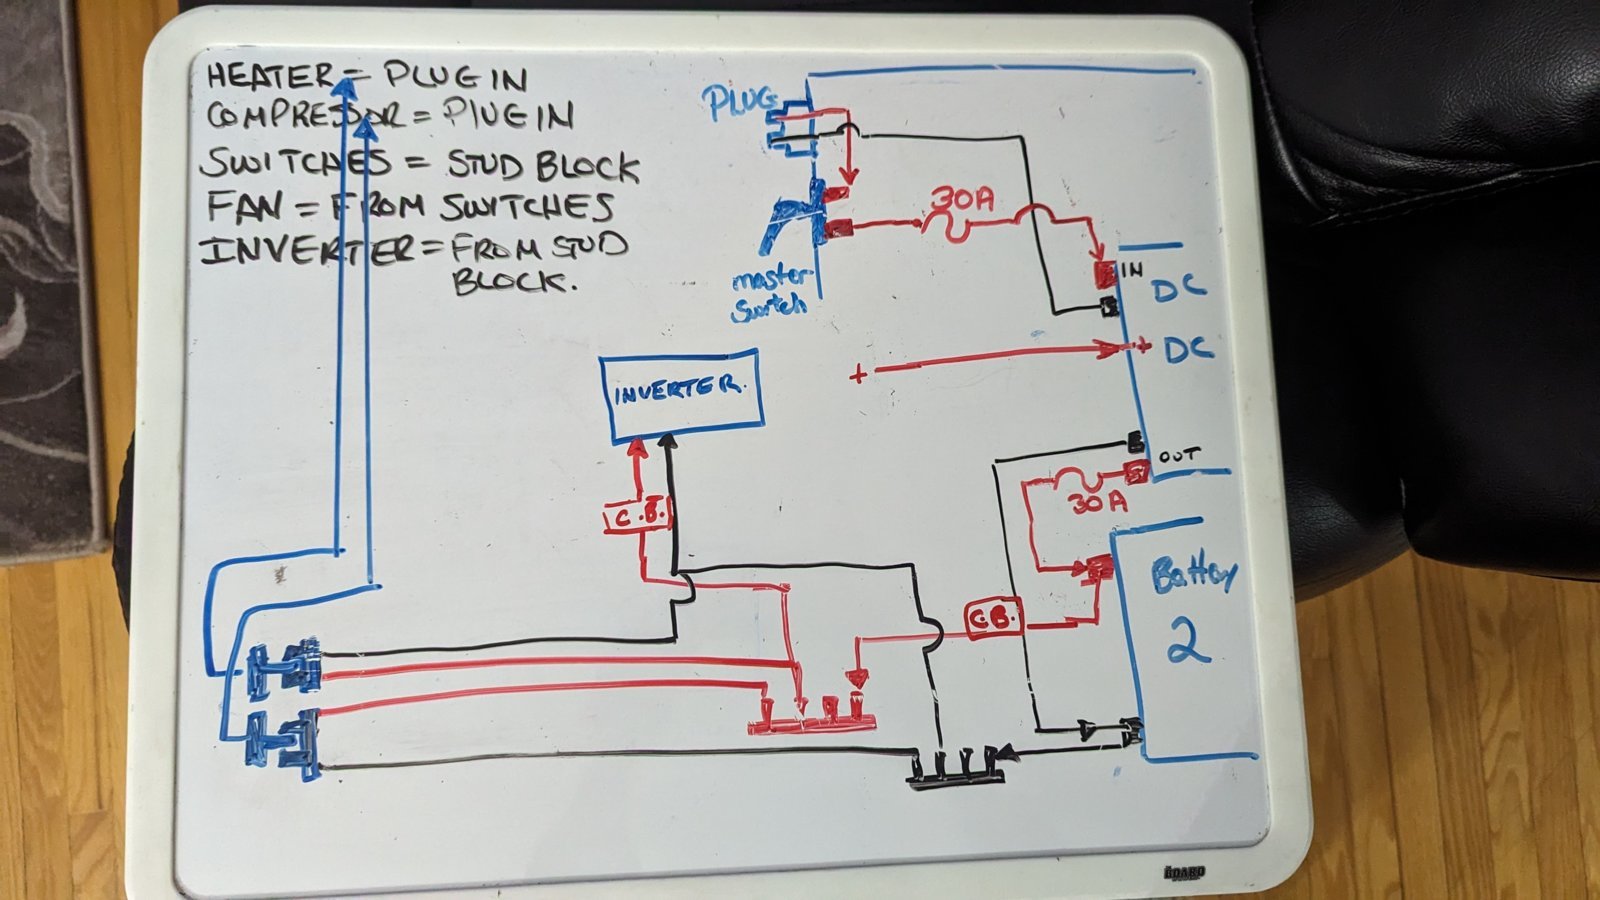 HEATER = PLUG IN
COMPRESSOR = PLUG IN
SWITCHES = STUD BLOCK
FAN = FROM SWITCHES
INVERTER = FROM STUD
BLOCK.
PLUG
master
Switch
30A
IN
DC
+ + DC
INVERTER.
OUT
30A
C.B.
Battery
2
C.B.
BOARD